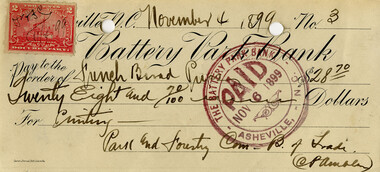 ville, N.C. November 4 1899 No. 3
Battery Park Bank
Pay to the
order of French Broad $28 70
Twenty Eight and 70/100 Dollars
For Printing
Park and Forestry Com. B. of Trade
C P Ambler
THE BATTERY PARK BANK
PAID
NOV 6 1899
ASHEVILLE, N.C.